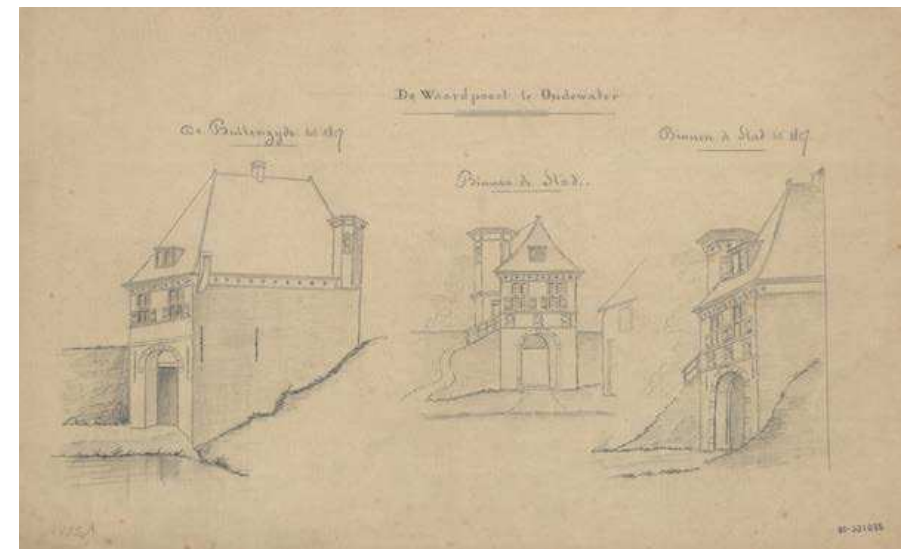 De Waardpoort te Oudewater
De Buitenzyde
Binnen de Stad
Binnen de Stad.